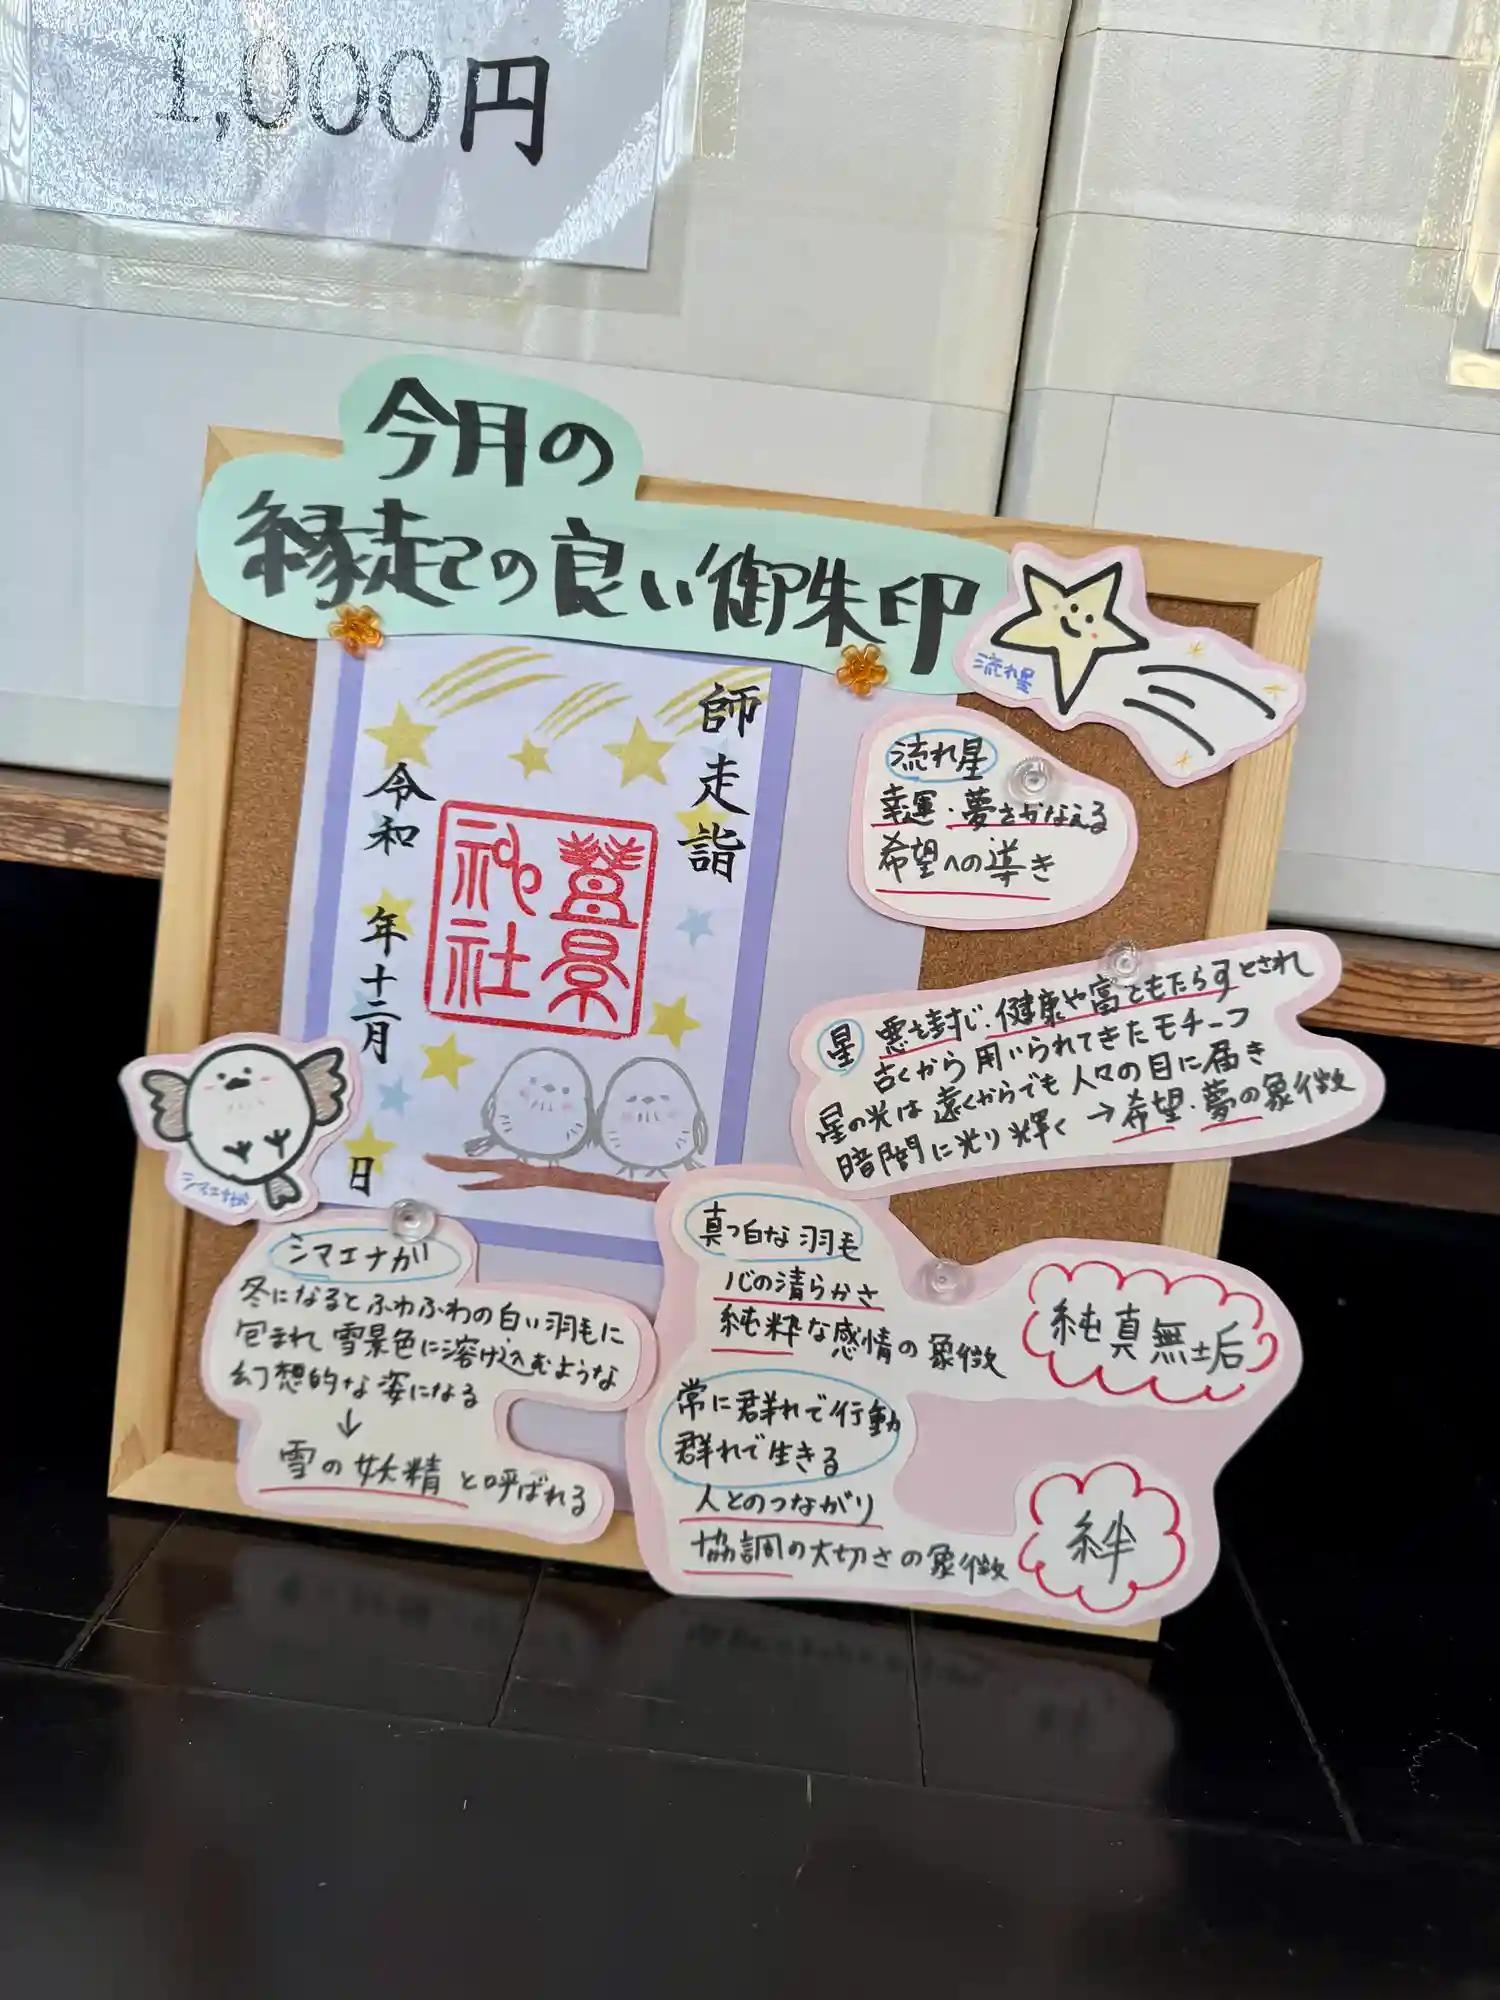 1,000円
今月の
縁起の良い御朱印
流れ星
師走詣
令和 年十二月 日
神社
流れ星
幸運・夢をかなえる
希望への導き
星 悪を封じ・健康や富をもたらすとされ
古くから用いられてきたモチーフ
星の光は遠くからでも人々の目に届き
暗闇に光り輝く→希望・夢の象徴
シマエナガ
シマエナガ
冬になるとふわふわの白い羽毛に
包まれ雪景色に溶け込むような
幻想的な姿になる
↓
雪の妖精と呼ばれる
真っ白な羽毛
心の清らかさ
純粋な感情の象徴
純真無垢
常に群れで行動
群れで生きる
人とのつながり
協調の大切さの象徴
絆